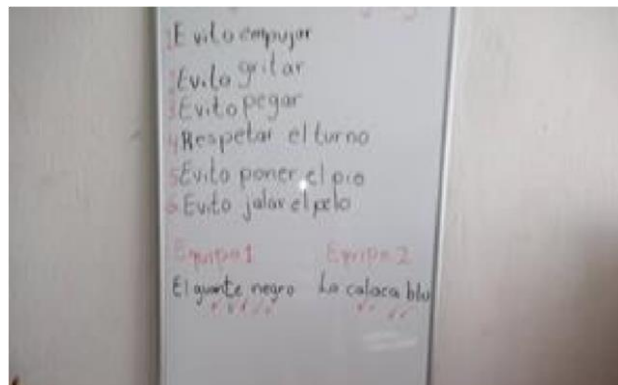 1 Evito empujar
2 Evito gritar
3 Evito pegar
4 Respetar el turno
5 Evito poner el pio
6 Evito jalar el pelo
Equipo 1 Equipo 2
El guante negro La calaca blu